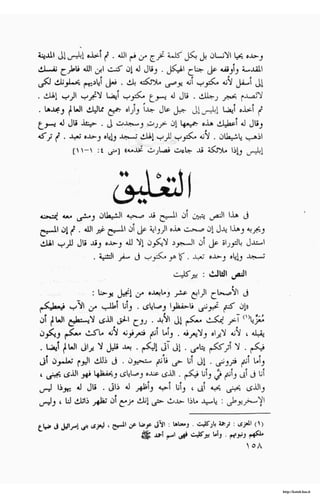 وحده يحيا الانسان بل بكل كلمة تخرج من فم الله . ثم أخذه إبليس إلى المدينة
المقدسة وأوقفه على جناح الهيكل . وقال له إن كنت ابن الله فاطرح نفسك
إلى أسفل لأنه مكتوب أنه يوصي ملائكته بك . فعلى أياديهم يحملونك لكي
لا تصدم بحجر رجلك . قال له يسوع مكتوب أيضاً لا تجرب الرب إلهك .
ثم أخذه أيضاً إبليس إلى جبل عال جداً وأراه جميع ممالك العالم ومجدها .
وقال له أعطيك هذه جميعها إن خررت وسجدت لي . حينئذ قال له يسوع
اذهب ياشيطان . لأنه مكتوب للرب إلهك تسجد وإياه وحده تعبد . ثم تركه
إبليس وإذا ملائكة قد جاءت فصارت تخدمه» (متى ٤: ١-١١)
التعليق
في هذا النص يتبين أن المسيح قد صحبه الشيطان ومشى معه يمتحنه
ويجربه وهذا يدل إن صحت هذه الرواية على أن المسيح غير الله . ثم إن المسيح
استدل بالتوراة على أن السجود لا يكون إلا لله وحده وقد قال للرب إلهك
تسجد وإياه وحده تعبد . كما هو مكتوب في سفر التثنية .
النص الثالث : بيركليت
في الأصحاح الرابع عشر ومابعده من إنجيل يوحنا :
«إن كنتم تحبونني فاحفظوا وصاياي . وأنا أطلب من الآب فيعطيكم
مُعَزِّياً (١) آخر ليمكث معكم إلى الأبد . روح الحق الذي لايستطيع العالم أن
يقبله ، لأنه لايراه ولايعرفه . وأما أنتم فتعرفونه لأنه ماكث معكم ويكون
فيكم . لا أترككم يتامى . إني آتي إليكم . بعد قليل لا يراني العالم أيضاً .
وأما أنتم فترونني . إني أنا حي فأنتم ستحيون . في ذلك اليوم تعلمون أني
أنا في أبي وأنتم فيَّ وأنا فيكم . الذي عنده وصاياي ويحفظها فهو الذي يحبني ،
والذي يحبني يحبه أبي ، وأنا أحبه وأظهر له ذاتي . قال له يهوذا ليس
الإسخريوطي : ياسيد ماذا حدث حتى إنك مزمع أن تظهر ذاتك لنا ، وليس
(١) المعزى : ترجمة باركليت . ومعناها : الآتي عوضاً عن المسيح ، ليعزي بني إسرائيل في ضياع
ملكهم ونبوتهم . وأما بيركليت فهي اسم أحمد ﷺ
١٥٨
http://kotob.has.it